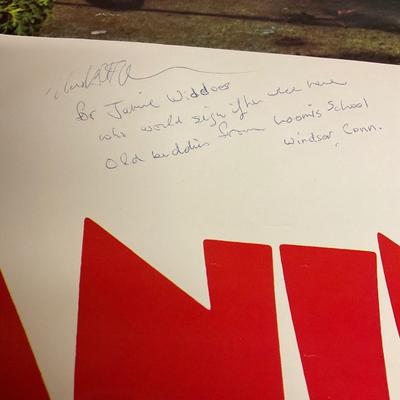 for Jamie Widdoes
who would sign if he were here
Old buddies from Loomis School
Windsor, Conn.
NI